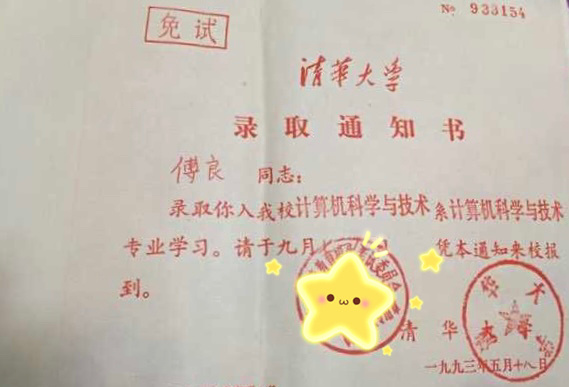 No 933154
免试
清華大学
录取通知书
傅良 同志:
录取你入我校计算机科学与技术系计算机科学与技术
专业学习。请于九月七 凭本通知来校报
到。
清华大学
一九九三年五月十八日